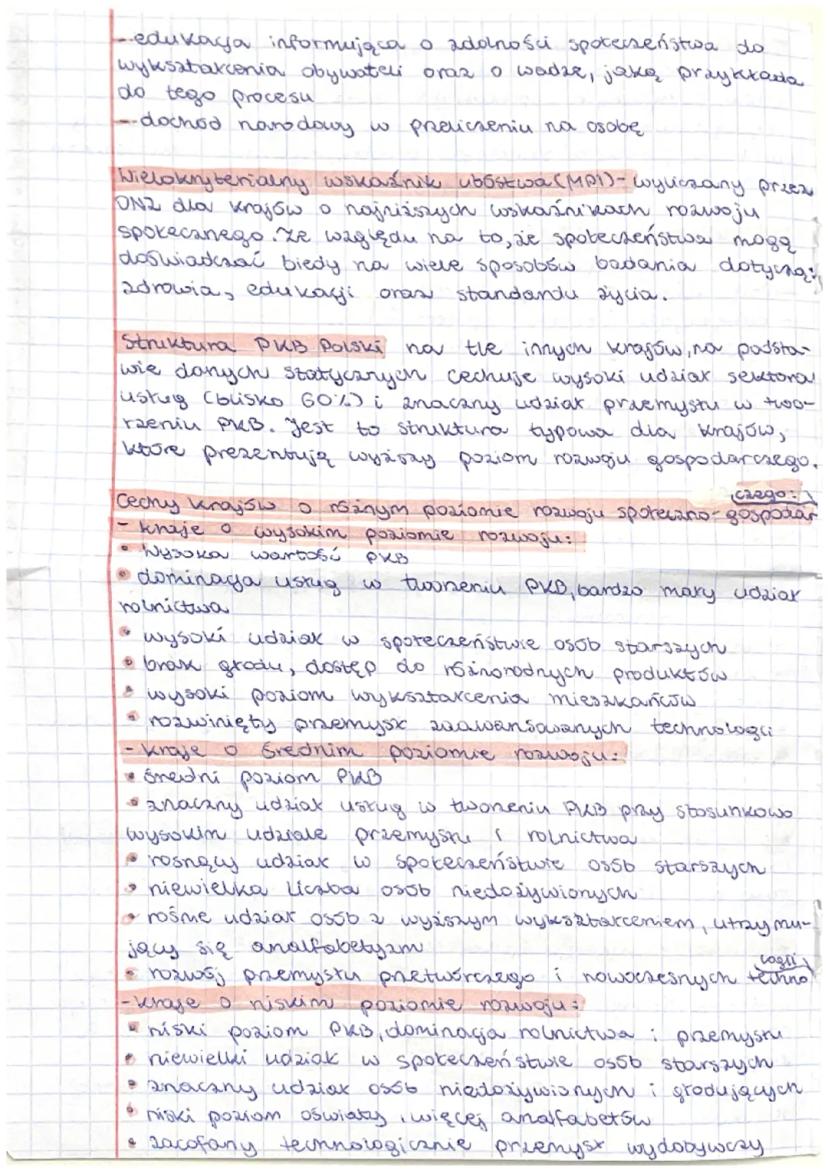 - edukacja informująca o zdolności społeczeństwa do
wykształcenia obywateli oraz o wadze, jaką przykłada
do tego procesu
- dochód narodowy w przeliczeniu na osobę
Wielokryterialny wskaźnik ubóstwa (MPI) - wyliczany przez
ONZ dla krajów o najniższych wskaźnikach rozwoju
społecznego. Ze względu na to, że społeczeństwa mogą
doświadczać biedy na wiele sposobów badania dotyczą:
zdrowia, edukacji oraz standardu życia.
Struktura PKB Polski na tle innych krajów, na podsta-
wie danych statycznych cechuje wysoki udział sektora
usług (blisko 60%) i znaczny udział przemysłu w two-
rzeniu PKB. Jest to struktura typowa dla krajów,
które prezentują wyższy poziom rozwoju gospodarczego.
czego:
Cechy krajów o różnym poziomie rozwoju społeczno-gospodar
- kraje o wysokim poziomie rozwoju:
• Wysoka wartość PKB
• dominacja usług w tworzeniu PKB, bardzo mały udział
rolnictwa
• wysoki udział w społeczeństwie osób starszych
• brak głodu, dostęp do różnorodnych produktów
• wysoki poziom wykształcenia mieszkańców
• rozwinięty przemysł zaawansowanych technologii
- kraje o średnim poziomie rozwoju:
• średni poziom PKB
• znaczny udział usług w tworzeniu PKB przy stosunkowo
wysokim udziale przemysłu i rolnictwa
• rosnący udział w społeczeństwie osób starszych
• niewielka liczba osób niedożywionych
• rośnie udział osób z wyższym wykształceniem, utrzymu-
jący się analfabetyzm
logii
• rozwój przemysłu przetwórczego i nowoczesnych techno
- kraje o niskim poziomie rozwoju:
• niski poziom PKB, dominacja rolnictwa i przemysłu
• niewielki udział w społeczeństwie osób starszych
• znaczny udział osób niedożywionych i głodujących
• niski poziom oświaty, więcej analfabetów
• zacofany technologicznie przemysł wydobywczy